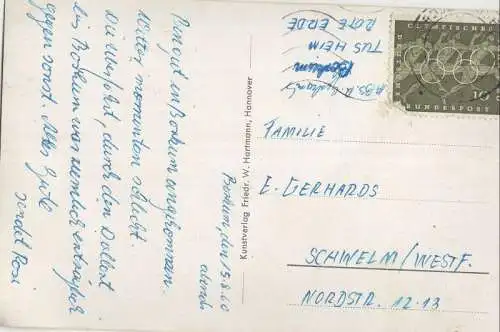 Borkum, den 15.8.60
abends
Bin gut in Borkum angekommen.
Wetter momentan schlecht.
Die Überfahrt durch den Dollart
bis Borkum war ziemlich erträglich
gegen sonst. Alles Gute
sendet Rosi
Kunstverlag Friedr. W. Hartmann, Hannover
ABS.
Borkum
TUS HEIM
ROTE ERDE
OLYMPISCHE
DEUTSCHE
BUNDESPOST
10
FAMILIE
E. GERHARDS
SCHWELM/WESTF.
NORDSTR. 12-13